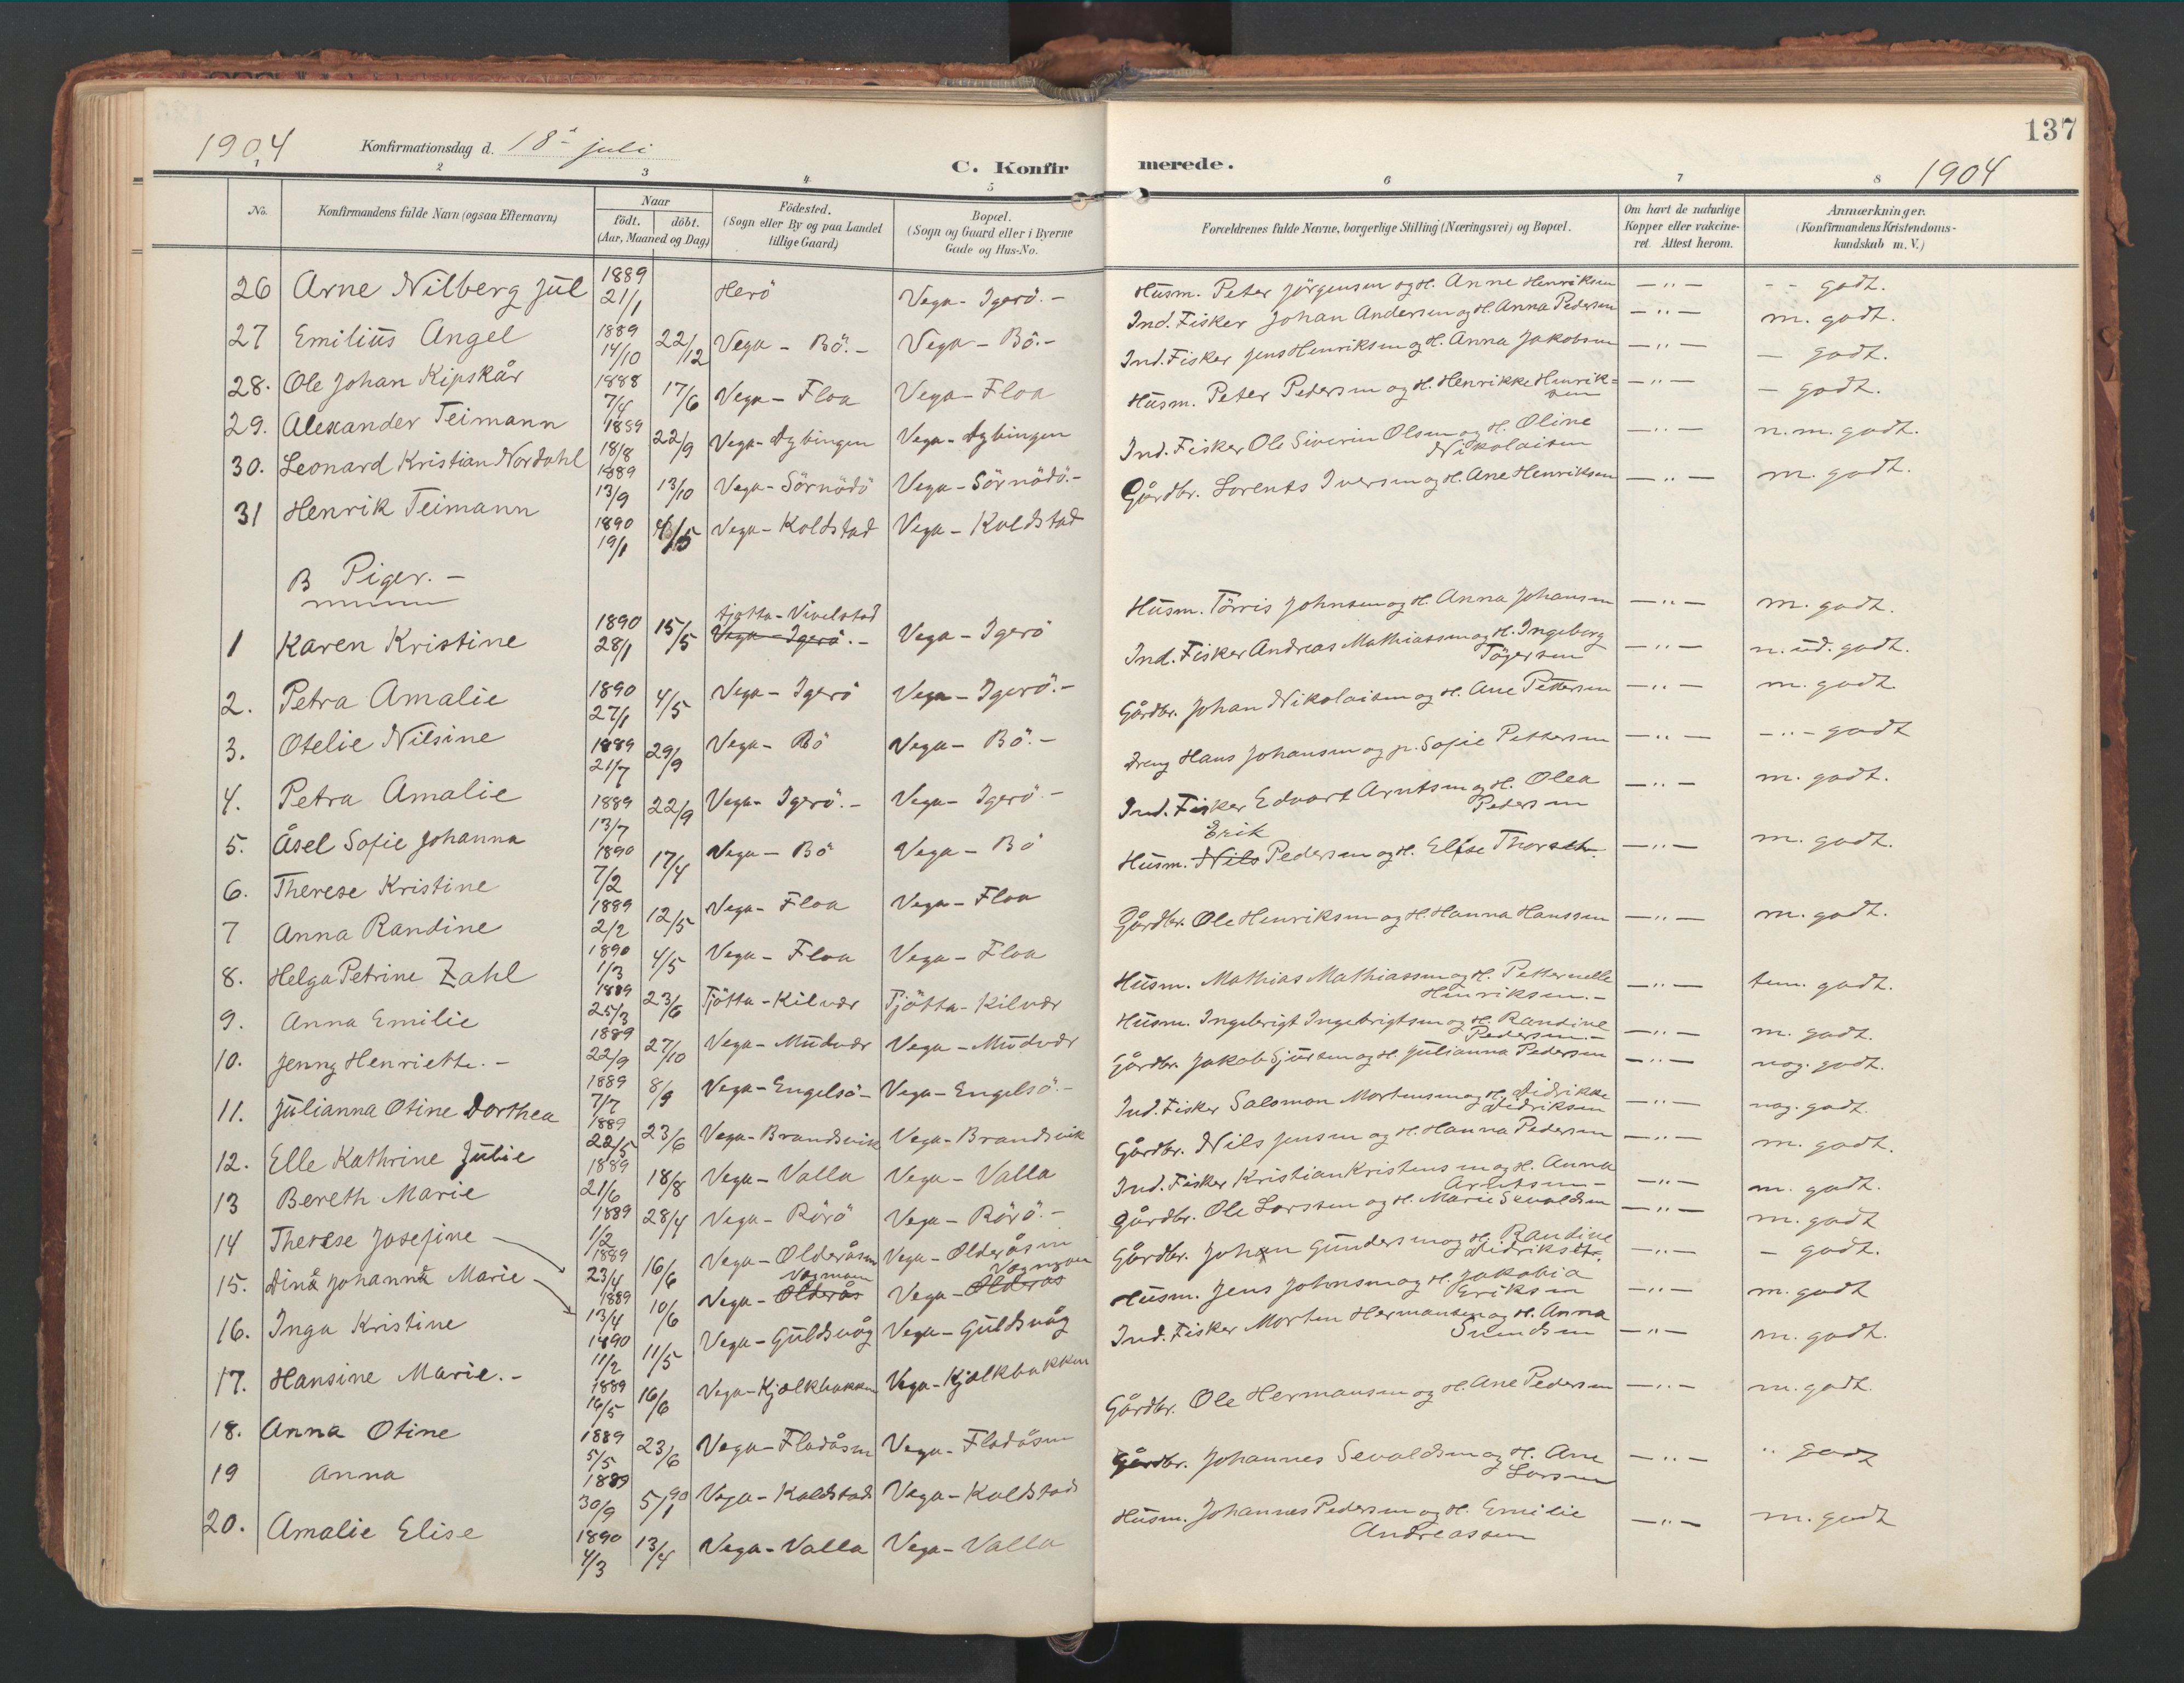 137
1904 Konfirmationsdag d. 18de juli C. Konfirmerede. 1904
1 2 3 4 5 6 7 8
No. Konfirmandens fulde Navn (ogsaa Efternavn) Naar födt. döbt. (Aar, Maaned og Dag) Födested. (Sogn eller By og paa Landet tillige Gaard) Bopæl. (Sogn og Gaard eller i Byerne Gade og Hus-No. Forældrenes fulde Navne, borgerlige Stilling (Næringsvei) og Bopæl. Om havt de naturlige Kopper eller vakcineret. Attest herom. Anmærkninger. (Konfirmandens Kristendomskundskab m. V.)
26 Arne Nilberg Jul 1889 21/1 Herö Vega - Igerö. - Husm. Peter Jörgensen og H. Anne Henriksen — " — - - godt.
27 Emilius Angel 1889 14/10 22/12 Vega - Bö. - Vega - Bö. - Ind. Fisker Johan Andersen og H. Anna Pedersen — " — m. godt.
28. Ole Johan Kipskår 1888 7/4 17/6 Vega - Floa Vega - Floa Ind. Fisker Jens Henriksen og H. Anna Jakobsen — " — - godt.
29. Alexander Teimann 1889 18/8 22/9 Vega - Dybingen Vega - Dybingen Husm. Peter Pedersen og H. Henrikke Henriksen — " — - godt.
30. Leonard Kristian Nordahl 1889 13/9 13/10 Vega - Sörnödö Vega - Sörnödö. - Ind. Fisker Ole Siverin Olsen og H. Oline Nikolaisen — " — n. m. godt.
31 Henrik Teimann 1890 19/1 4/5 Vega - Koldstad Vega - Koldstad Gårdbr. Lorents Iversen og H. Ane Henriksen — " — m. godt.
B Piger. -
1 Karen Kristine 1890 28/1 15/5 Tjøtta - Vivelstad Vega - Igerö. - Vega - Igerö Husm. Törris Johnsen og H. Anna Johansen — " — m. godt.
2. Petra Amalie 1890 27/1 4/5 Vega - Igerö Vega - Igerö. - Ind. Fisker Andreas Mathiassen og H. Ingeborg Tögersen — " — n. ud. godt.
3. Otelie Nilsine 1889 21/7 29/9 Vega - Bö Vega - Bö. - Gårdbr. Johan Nikolaisen og H. Ane Pettersen — " — m. godt
4. Petra Amalie 1889 13/7 22/9 Vega - Igerö. - Vega - Igerö. - Dreng Hans Johansen og p. Sofie Pettersen — " — - " - godt
5. Åsel Sofie Johanna 1890 7/2 17/4 Vega - Bö Vega - Bö Ind. Fisker Edvart Arntsen og H. Olea Pedersen — " — m. godt.
6. Therese Kristine 1889 2/2 12/5 Vega - Floa Vega - Floa Husm. Nils Erik Pedersen og H. Elise Thorsen — " — m. godt.
7 Anna Randine 1890 1/3 4/5 Vega - Floa Vega - Floa Gårdbr. Ole Henriksen og H. Hanna Hanssen — " — m. godt.
8. Helga Petrine Zahl 1889 25/3 23/6 Tjötta - Kilvær Tjötta - Kilvær Husm. Mathias Mathiassen og H. Petternelle Henriksen. - — " — tem. godt.
9. Anna Emilie 1889 22/9 27/10 Vega - Mudvær Vega - Mudvær Husm. Ingebrigt Ingebrigtsen og H. Randine Pedersen. - — " — m. godt.
10. Jenny Henriette. - 1889 7/7 8/9 Vega - Engelsö - Vega - Engelsö. - Gårdbr. Jakob Sjursen og H. Julianna Pedersen — " — nog. godt.
11. Julianna Otine Dorthea 1889 22/5 23/6 Vega - Brandsvik Vega - Brandsvik Ind. Fisker Salomon Mortensen og H. Didrikke Didriksen — " — nog. godt.
12. Elle Kathrine Julie 1889 21/6 18/8 Vega - Valla Vega - Valla Gårdbr. Nils Jensen og H. Hanna Pedersen — " — m. godt.
13 Bereth Marie 1889 1/2 28/4 Vega - Rörö Vega - Rörö. - Ind. Fisker Kristian Kristensen og H. Anna Arntsen - — " — m. godt.
14 Therese Josefine 1889 23/4 16/6 Vega - Olderåsen Vega - Olderåsen Gårdbr. Ole Larsen og H. Marie Sevaldsen — " — m. godt
15. Dina Johanna Marie 1889 13/4 10/6 Vega - Olderås Vega - Olderås Gårdbr. Johan Gundersen og H. Randine Didriksdtr. — " — - godt.
16. Inga Kristine 1890 11/2 11/5 Vega - Guldsvåg Vega - Guldsvåg Husm. Jens Johnsen og H. Jakobia Eriksen — " — m. godt
17. Hansine Marie. - 1889 16/5 16/6 Vega - Kjælkbakken Vega - Kjælkbakken Ind. Fisker Morten Hermansen og H. Anna Svendsen — " — m. godt.
18. Anna Otine 1889 5/5 23/6 Vega - Fladåsen Vega - Fladåsen Gårdbr. Ole Hermansen og H. Ane Pedersen — " — m. godt.
19 Anna 1889 30/9 5/1 90 Vega - Koldstad Vega - Koldstad Gårdbr. Johannes Sevaldsen og H. Ane Larsen — " — " godt
20. Amalie Elise 1890 4/3 13/4 Vega - Valla Vega - Valla Husm. Johannes Pedersen og H. Emilie Andreassen — " — m. godt